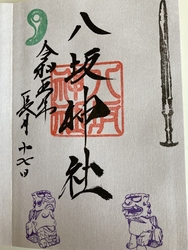 八坂神社
八坂神社
令和五年
長月十七日